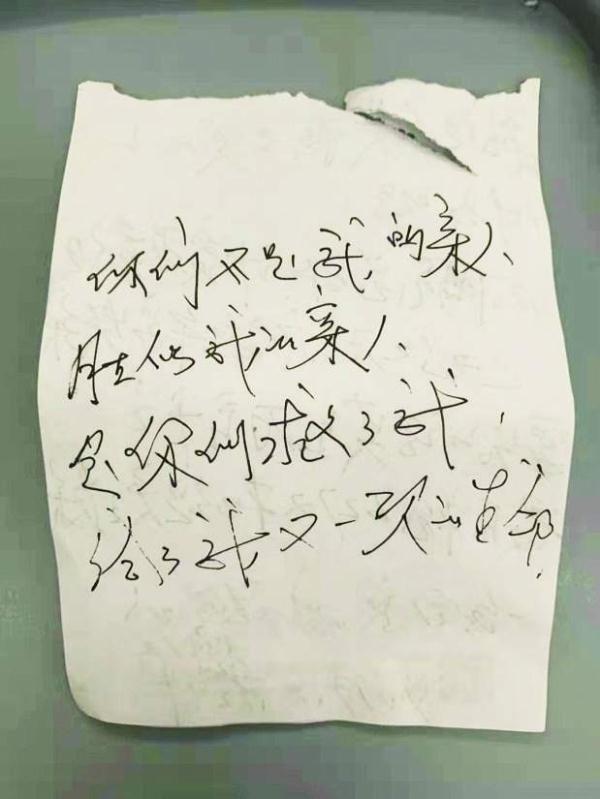 你们不是我的亲人、
胜似我的亲人、
是你们救了我，
给了我又一次的生命